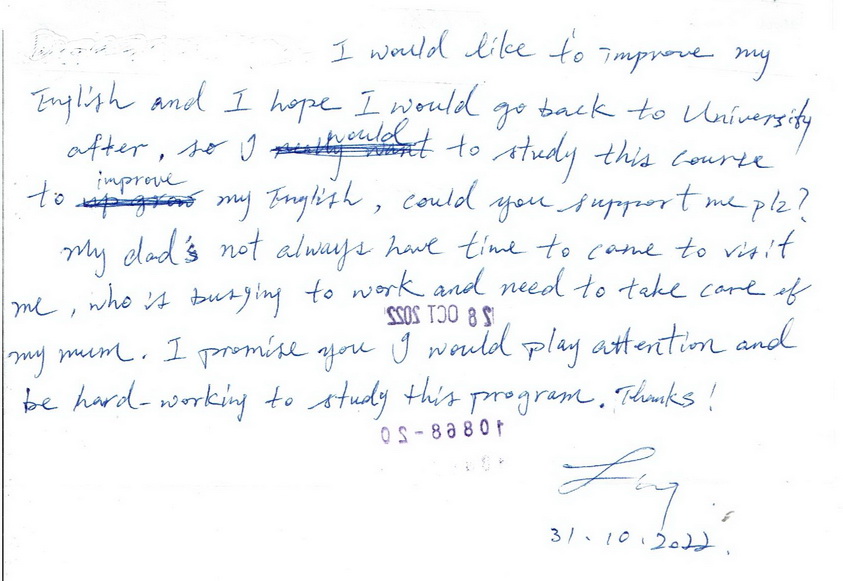 I would like to improve my
English and I hope I would go back to University
after, so I would to study this course
to improve my English, could you support me plz?
My dad's not always have time to come to visit
me, who is busying to work and need to take care of
28 OCT 2022
my mum. I promise you I would play attention and
be hard-working to study this program. Thanks!
10868-20
31.10.2022.